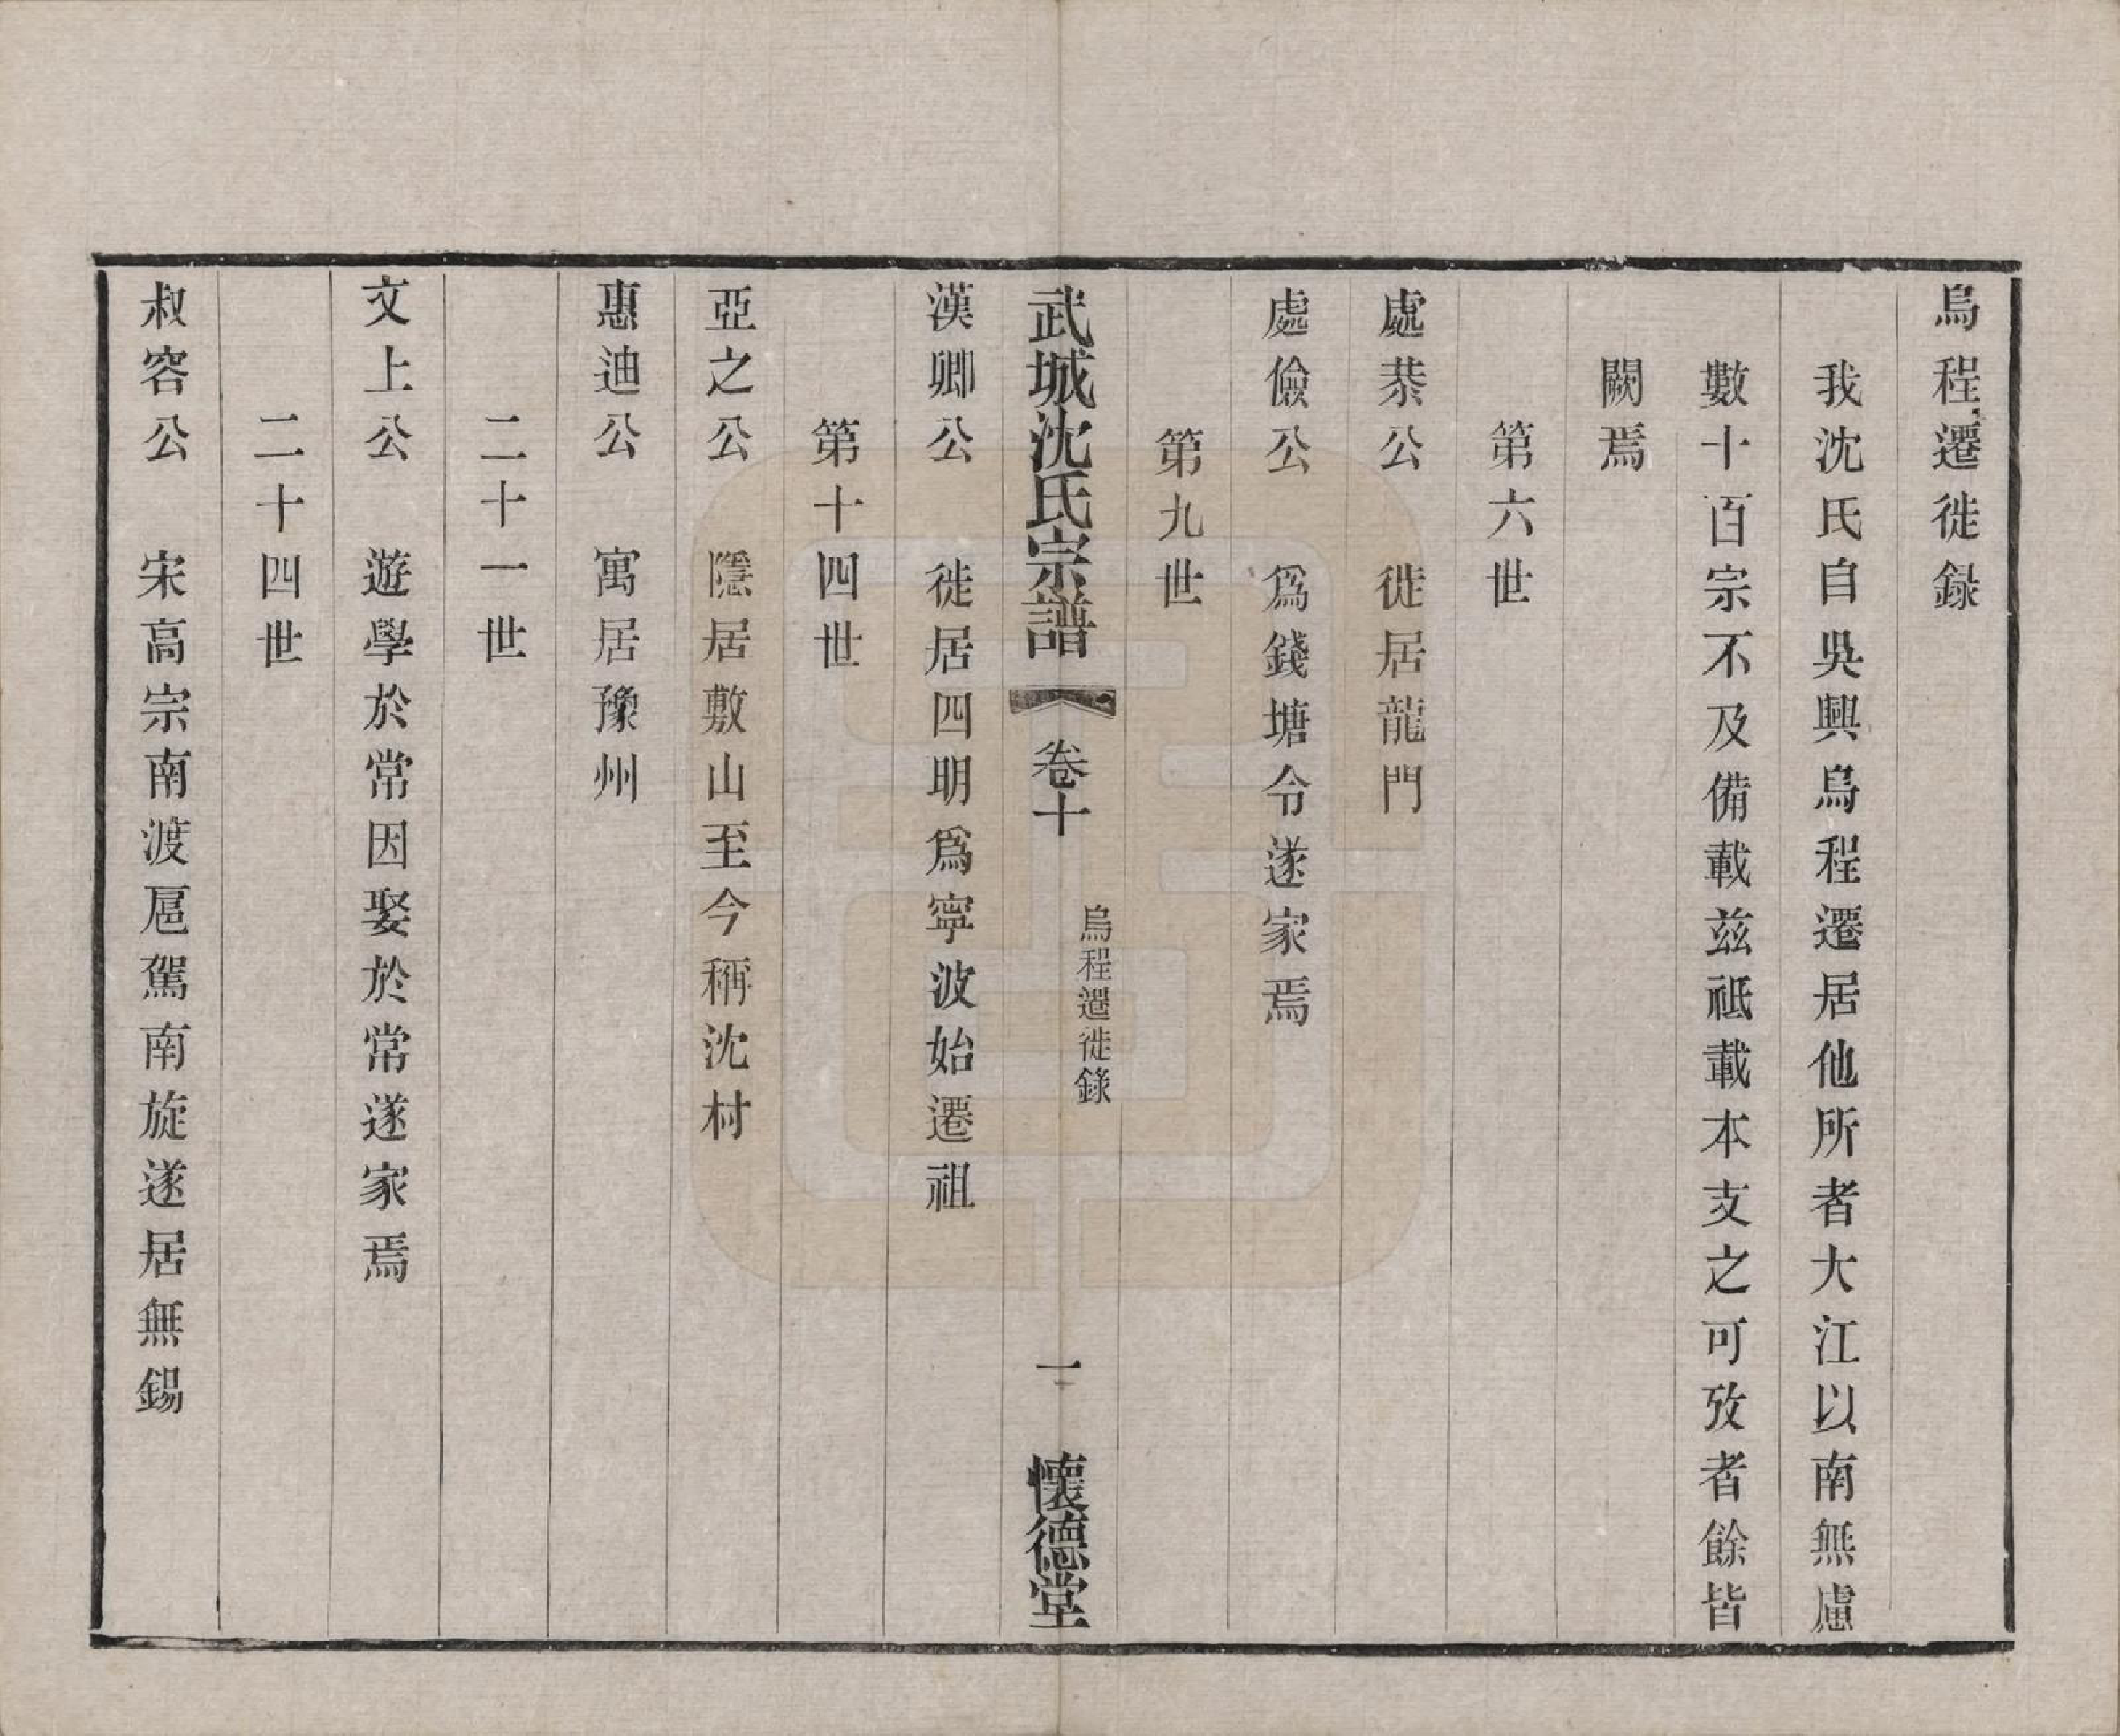 烏程遷徙録
我沈氏自吳興烏程遷居他所者大江以南無慮
數十百宗不及備載茲祗載本支之可攷者餘皆
闕焉
第六世
處恭公　徙居龍門
處儉公　爲錢塘令遂家焉
第九世
武城沈氏宗譜　卷十　烏程遷徙錄　一　懷德堂
漢卿公　徙居四明爲寧波始遷祖
第十四世
亞之公　隱居敷山至今稱沈村
惠迪公　寓居豫州
二十一世
文上公　遊學於常因娶於常遂家焉
二十四世
叔容公　宋高宗南渡扈駕南旋遂居無錫